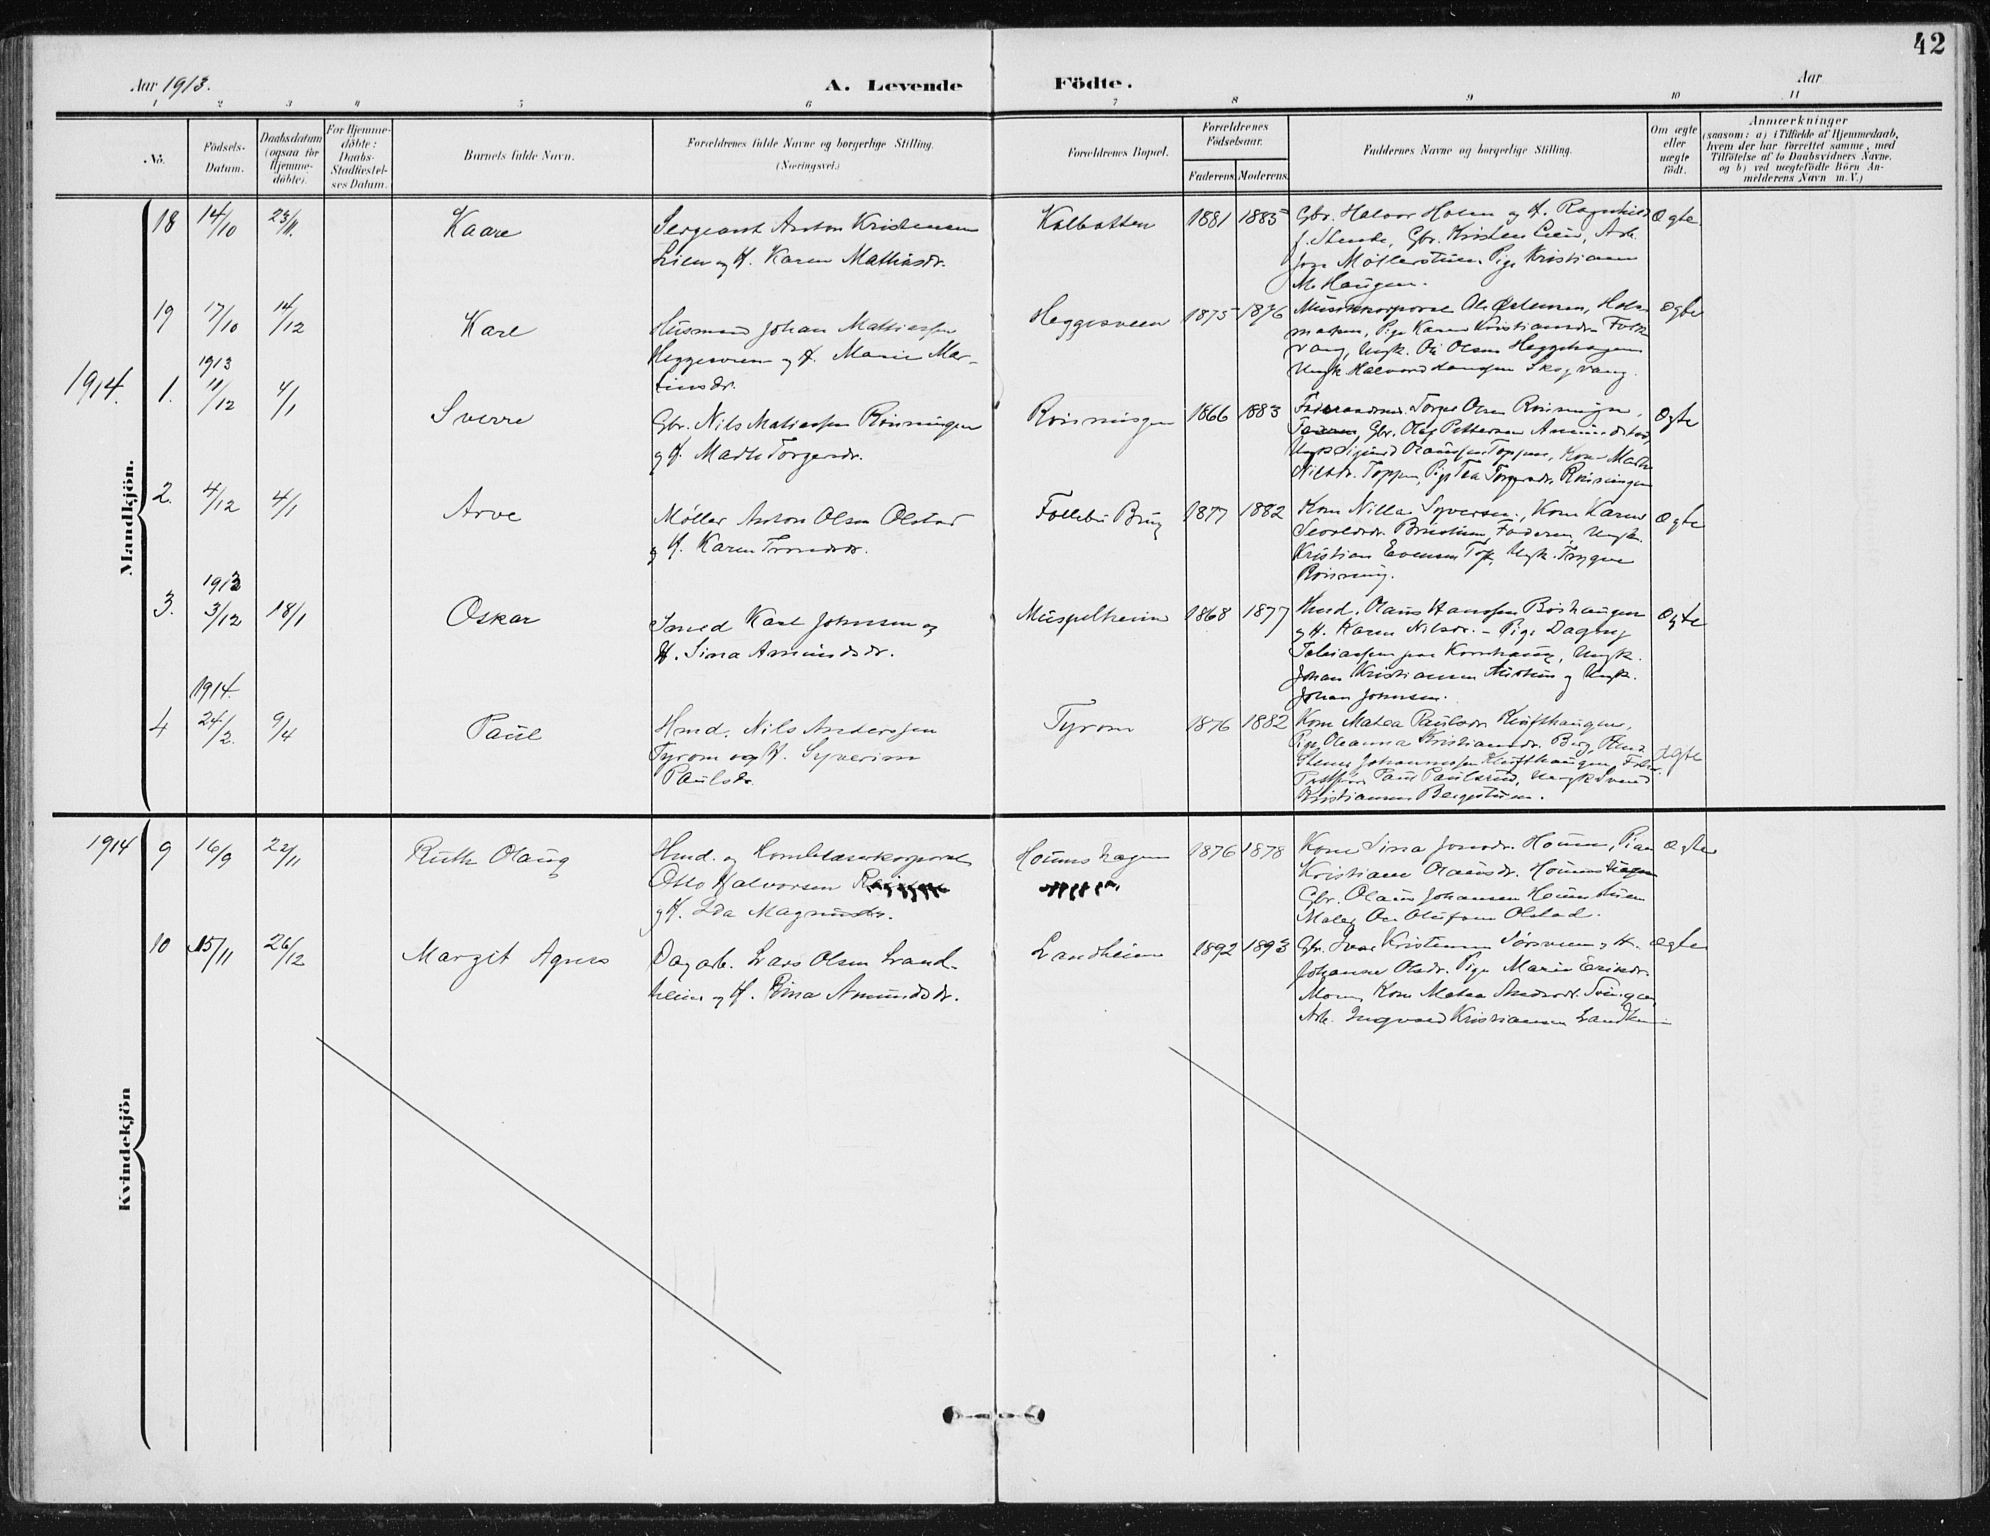 42
Aar 1913. A. Levende Födte. Aar
1 2 3 4 5 6 7 8 9 10 11
No.
Födsels-
Datum.
Daabsdatum
(ogsaa for
Hjemme-
døbte).
For Hjemme-
døbte:
Daabs-
Stadfæstel-
ses Datum.
Barnets fulde Navn.
Forældrenes fulde Navne og borgerlige Stilling.
(Næringsvei.)
Forældrenes Bopæl.
Forældrenes
Födselsaar.
Faderens. Moderens.
Faddernes Navne og borgerlige Stilling.
Om ægte
eller
uægte
födt.
Anmærkninger
(saasom: a) i Tilfælde af Hjemmedaab,
hvem der har forrettet samme, med
Tilføielse af to Daabsvidners Navne,
og b) ved uægtefödte Börn An-
melderens Navn m. V.)
Mandkjön.
18 14/10 23/11 Kaare
Sergeant Anton Kristensen
Lien og H. Karen Mathiasdr.
Kalbakken 1881 1885
Gbr. Halvor Holen og H. Ragnhild
Gbr. Kristen Lien, Arb.
Møllerstuen, Pige Kristiane
M. Haugen.
Ægte
19 17/10 14/12 Karl
Husmand Johan Mathiassen
Heggesveen og H. Marie Mar-
tinsdr.
Heggesveen 1875 1876
Musikkorporal Ole Østensen,
Pige Karen Kristiansdr. Folk-
vang, Ungk. Ole Olsen Heggehagen
Ungk. Halvord Hansen Skogvang.
Ægte
1914.
1. 1913 11/12 4/1 Sverre
Gbr. Nils Matiassen Rönningen
og H. Marthe Torgersdr.
Rönningen 1866 1883
Torger Olsen Rönningen,
Gbr. Olaf Pettersen Amundstad,
Ungk. Sigurd Olaussen Toppen, Kone Marthe
Nilsdr. Toppen, Pige Tea Torgersdr. Rönningen
Ægte
2. 4/12 4/1 Arve
Møller Anton Olsen Olstad
og H. Karen Trondsdr.
Follebu Brug 1877 1882
Kone Nilla Syversen, Kone Karen
Faderen, Ungk.
Kristian Evensen Ungk. Trygve
Rönning.
Ægte
3. 1913 3/12 18/1 Oskar
Smed Karl Johnsen og
H. Sina Amundsdr.
Muspelheim 1868 1877
Hmd. Olaus Hanssen Böshaugen
og H. Karen Nilsdr. - Pige Dagny
Tobiassen Kornhaug, Ungk.
Johan Kristiansen og Ungk.
Johan Johnsen.
Ægte
4 1914. 24/2. 9/4 Paul
Hmd. Nils Anderssen
Tyrom og H. Syverine
Paulsdr.
Tyrom 1876 1882
Kone Matea Paulsdr. Klufthaugen,
Pige Oleanna Kristiansdr. Berg, Hmd.
Johannessen Klufthaugen,
Paul Paulsrud, Ungk. Svend
Kristiansen Bergstuen.
Ægte
Kvindekjön
1914
9 16/9 22/11 Ruth Olaug
Hmd. og Hornblæserkorporal
Otto Halvorsen
og H. Ida Magnusdr.
Hounshagen 1876 1878
Kone Sina Jonsdr. Houn, Pige
Kristiane Olausdr. Hounshagen
Gbr. Olaus Johansen Hounstuen
Maler Ole Olufsen Olstad.
Ægte
10 15/11 26/12 Margit Agnes
Dagarb. Lars Olsen Land-
heim og H. Rina Amundsdr.
Landheim 1892 1893
Gbr. Iver Kristensen Sörsveen og H.
Johanne Olsdr. Pige Marie Eriksdr.
Moen, Kone Matea Andersdr. Svingen,
Arb. Ingvald Kristiansen Landheim
Ægte